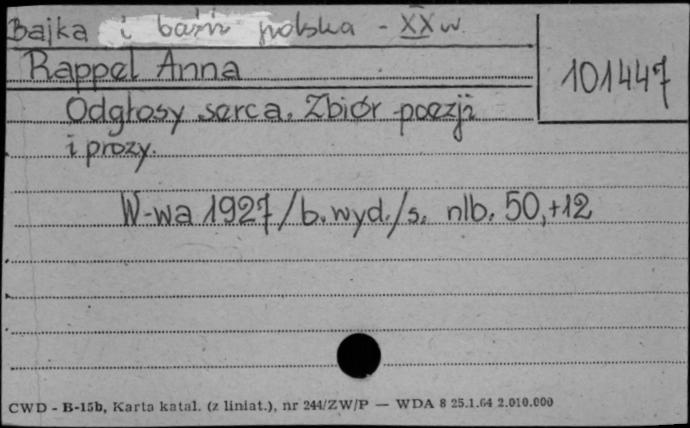 Bajka i baśń polska - XX w.
Rappel Anna
101447
Odgłosy serca. Zbiór poezji
i prozy.
W-wa 1927 /b. wyd./ s. nlb. 50,+12
CWD - B-15b, Karta katal. (z liniat.), nr 244/ZW/P — WDA 8 25.1.64 2.010.000